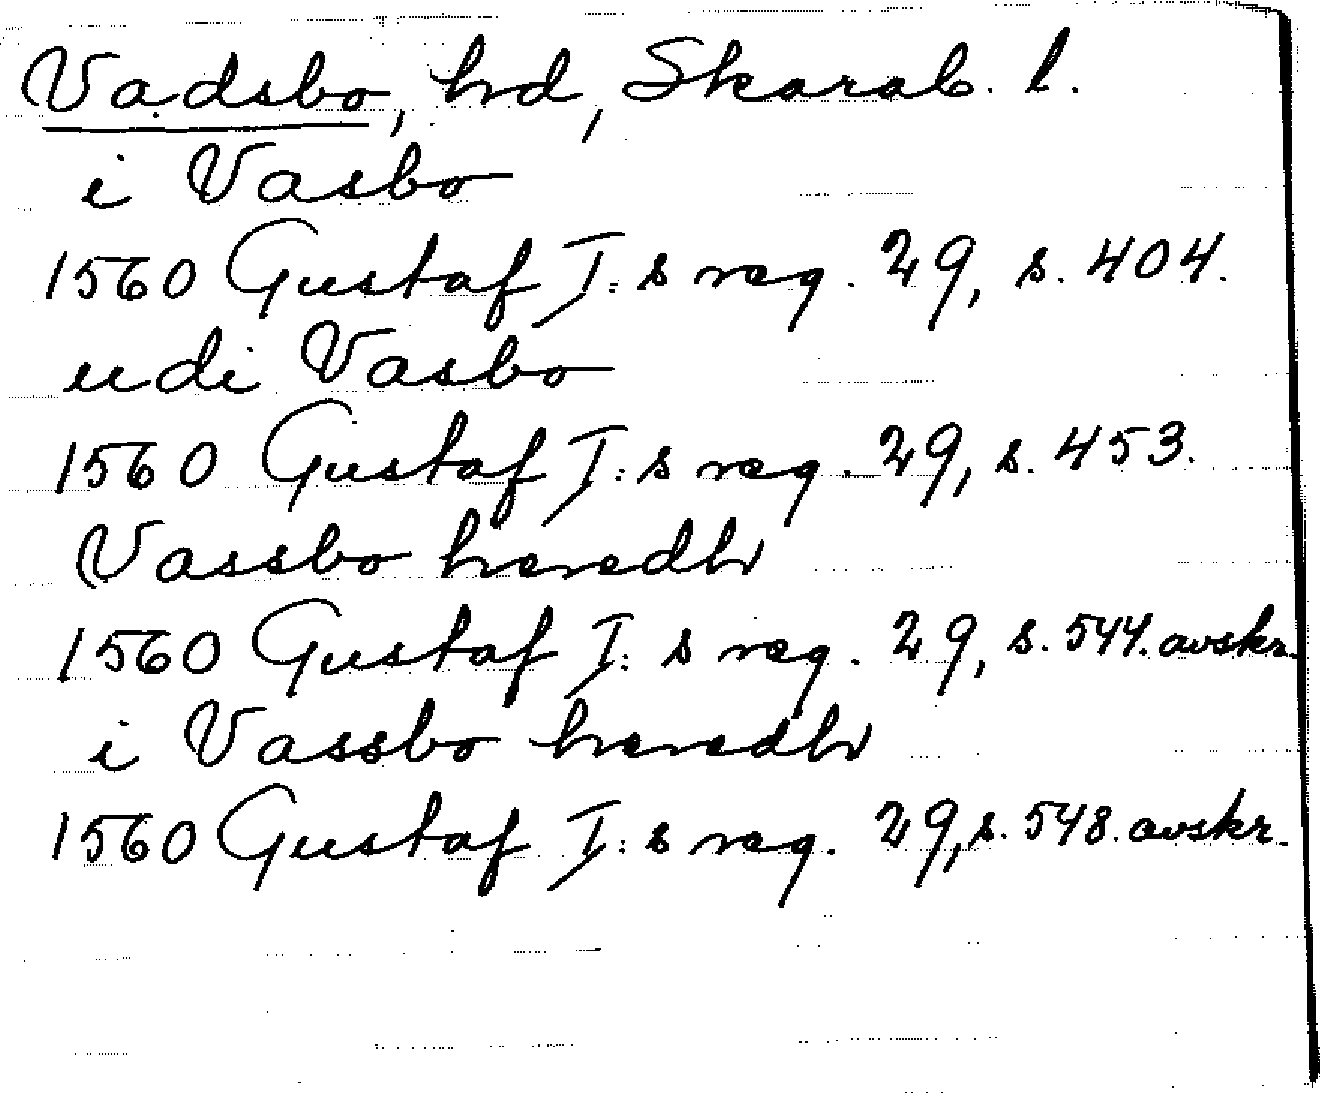 Vadsbo, hd, Skarab. l.
i Vasbo
1560 Gustaf I:s reg. 29, s. 404.
udi Vasbo
1560 Gustaf I:s reg. 29, s. 453.
Vassbo heredh
1560 Gustaf I:s reg. 29, s. 544. avskr.
i Vassbo heredh
1560 Gustaf I:s reg. 29, s. 548. avskr.